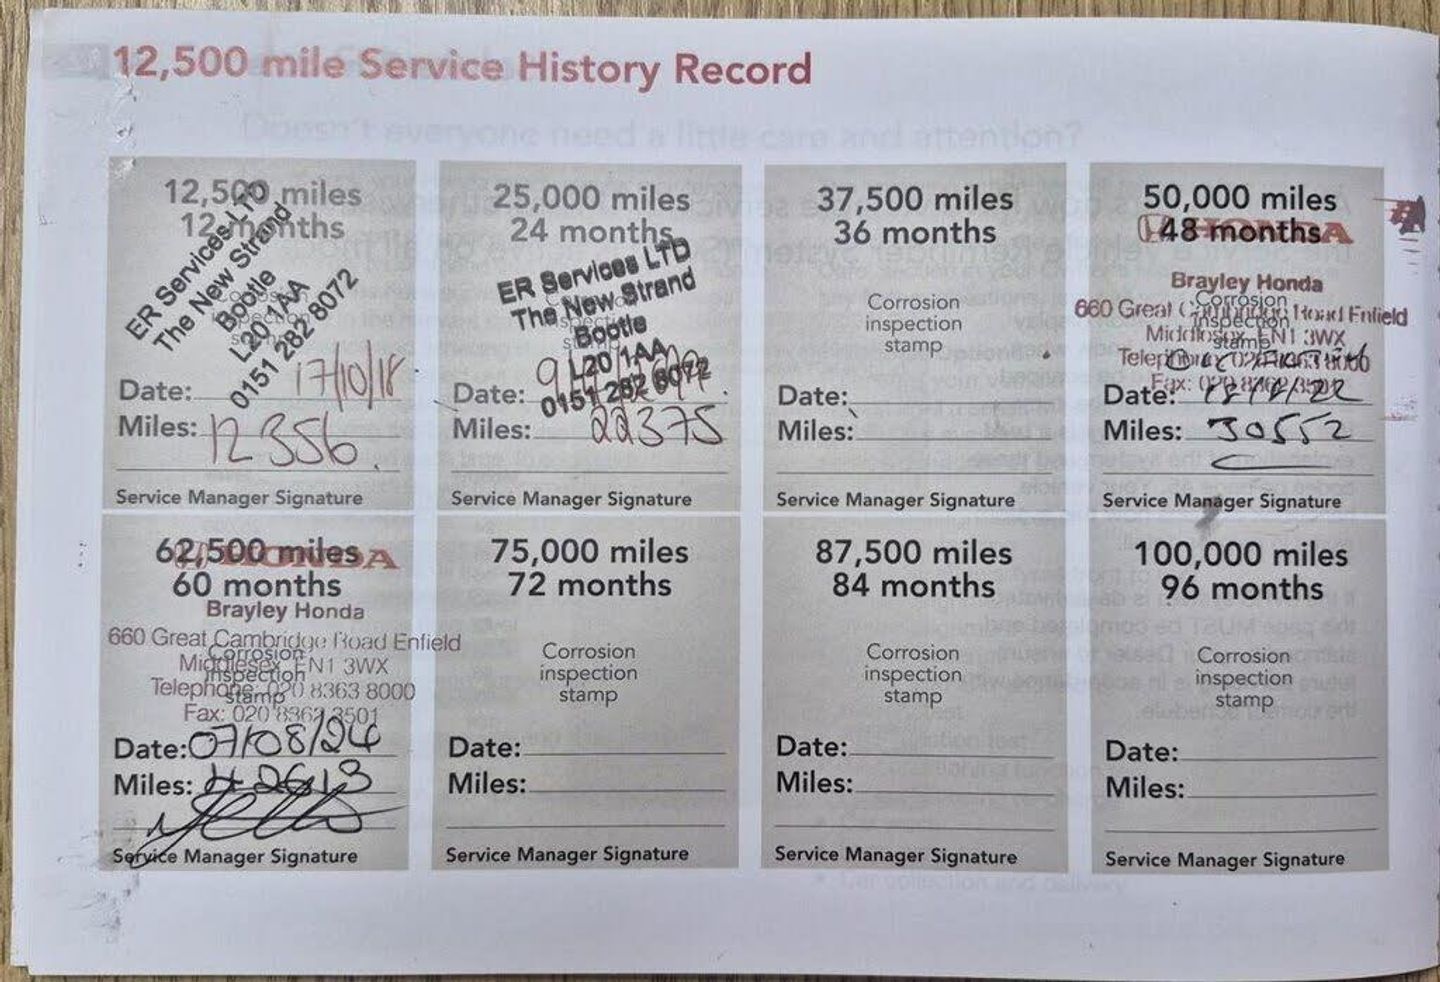 12,500 mile Service History Record
Doesn't everyone need a little care and attention?
12,500 miles
12 months
ER Services LTD
The New Strand
Bootle
L20 1AA
0151 282 8072
Date: 17/10/18
Miles: 12356
Service Manager Signature
25,000 miles
24 months
ER Services LTD
The New Strand
Bootle
L20 1AA
0151 282 8072
Date:
Miles: 22375
Service Manager Signature
37,500 miles
36 months
Corrosion
inspection
stamp
Date:
Miles:
Service Manager Signature
50,000 miles
48 months
HONDA
Brayley Honda
660 Great Cambridge Road Enfield
Middlesex EN1 3WX
Corrosion
inspection
stamp
Date:
Miles: 30552
Service Manager Signature
62,500 miles
HONDA
60 months
Brayley Honda
660 Great Cambridge Road Enfield
Corrosion
Middlesex EN1 3WX
inspection
Telephone: 020 8363 8000
stamp
Fax: 020 8362 3501
Date: 07/08/24
Miles: 42613
Service Manager Signature
75,000 miles
72 months
Corrosion
inspection
stamp
Date:
Miles:
Service Manager Signature
87,500 miles
84 months
Corrosion
inspection
stamp
Date:
Miles:
Service Manager Signature
100,000 miles
96 months
Corrosion
inspection
stamp
Date:
Miles:
Service Manager Signature